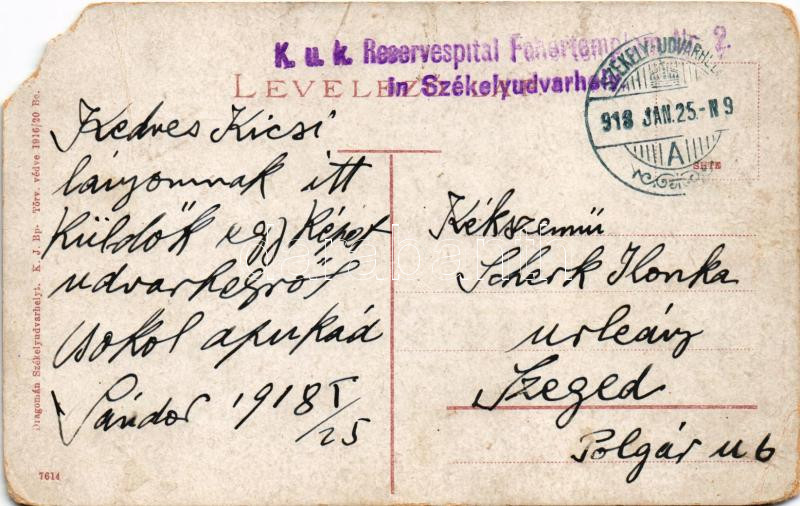 K. u. k. Reservespital Fehértemplom Nr. 2.
in Székelyudvarhely
LEVELEZŐ-LAP
SZÉKELYUDVARHELY
918 JAN.25.-N 9
A
Kedves Kicsi
lányomnak itt
küldök egy képet
udvarhelyről
csokol apukád
Sándor 1918 I/25
Kékszemü
Scherk Ilonka
urleány
Szeged
Polgár u 6
Dragomán Székelyudvarhelyt. K. J. Bp. Törv. védve 1916/20 Be.
7614